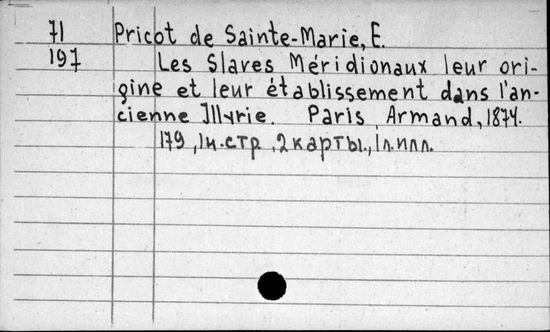 71 Pricot de Sainte-Marie, E.
197 Les Slaves Méridionaux leur ori-
gine et leur établissement dans l'an-
cienne Illyrie. Paris Armand, 1874.
179, 1н.стр., 2 карты., 1л.илл.